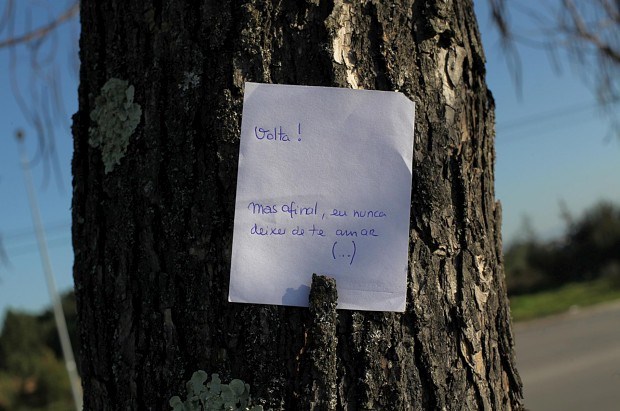 Volta!
mas afinal, eu nunca
deixei de te amar
(...)